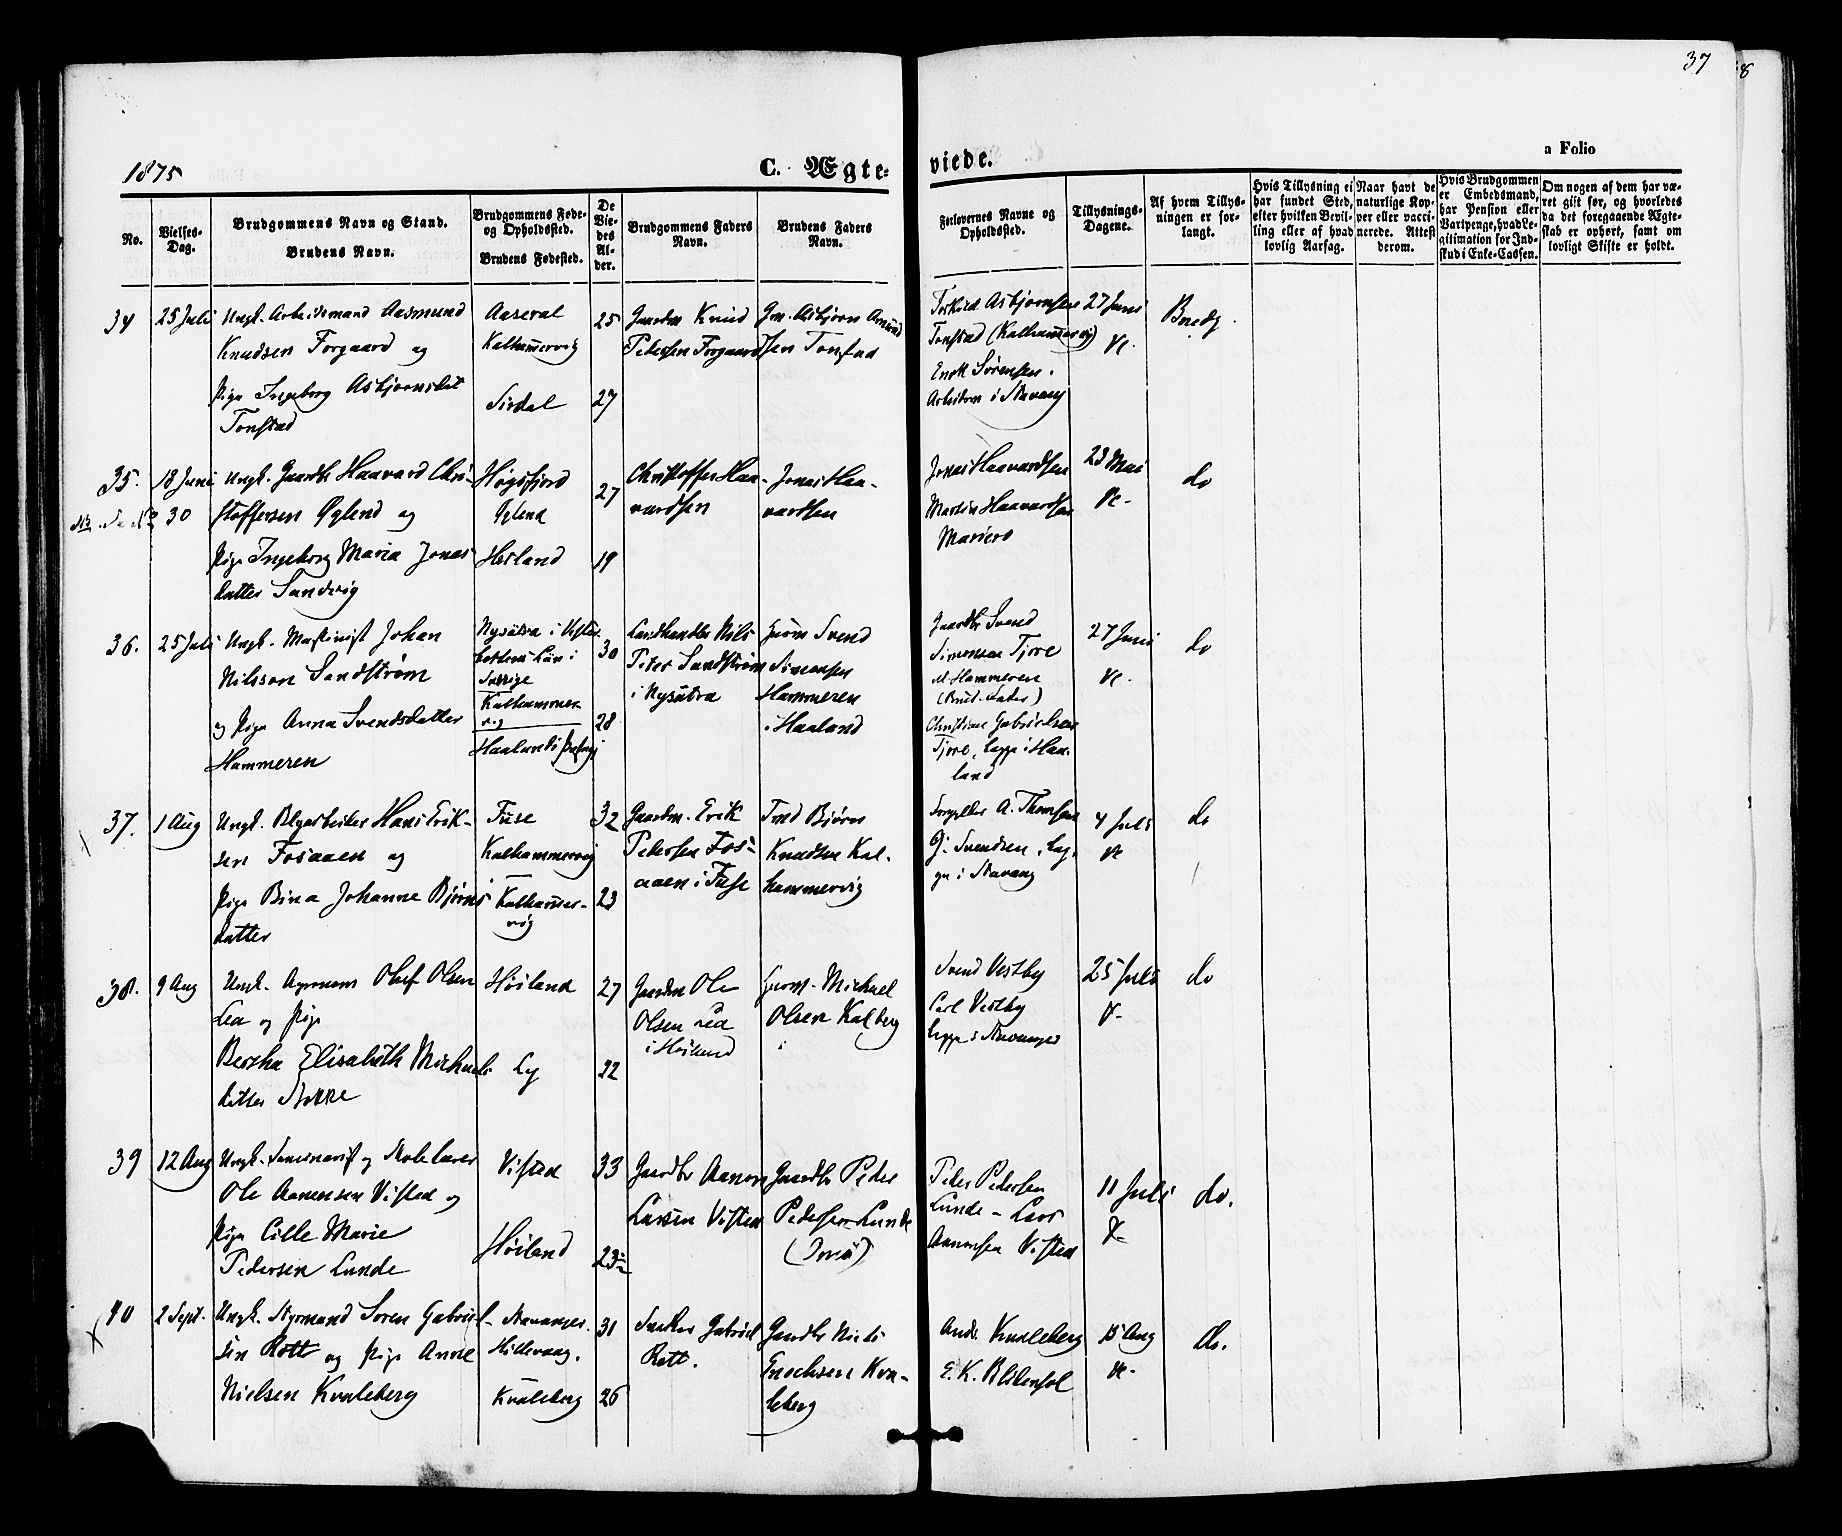 37
8
1875
C. Ægte-
viede.
a Folio
No.
Vielses-
Dag.
Brudgommens Navn og Stand.
Brudens Navn.
Brudgommens Føde-
og Opholdssted.
Brudens Fødested.
De
Vie-
des
Al-
der.
Brudgommens Faders
Navn.
Brudens Faders
Navn.
Forlovernes Navne og
Opholdssted.
Tillysnings-
Dagene.
Af hvem Tillys-
ningen er for-
langt.
Hvis Tillysning ei
har fundet Sted,
efter hvilken Bevil-
ling eller af hvad
lovlig Aarsag.
Naar havt de
naturlige Kop-
per eller vacci-
nerede. Attest
derom.
Hvis Brudgommen
er Embedsmand,
har Pension eller
Vartpenge, hvad Le-
gitimation for Ind-
skud i Enke-Cassen.
Om nogen af dem har væ-
ret gift før, og hvorledes
da det foregaaende Ægte-
skab er ophørt, samt om
lovligt Skifte er holdt.
34
25 Juli
Ungk. Arbeidsmand Aasmund
Knudsen Forgaard og
Pige Ingeborg Asbjørnsdat
Tonstad
Aaseral
Kalhammervig
Sirdal
25
27
Gaardm Knud
Pedersen Forgaard
Gm. Asbjørn Aasmund
sen Tonstad
Torkild Asbjørnsen
Tonstad (Kalhammervig)
Enok Sørensen
Arbeidsm i Stavang
27 Juni
Brudg.
35.
18 Juni
30
Ungk. Gaardbr Haavard Chri-
stoffersen Øglend og
Pige Ingeborg Maria Jonas
datter Sandvig
Høgsfjord
Øglend
Hetland
27
19
Christoffer Haa-
vardsen
Jonas Haa-
vardsen
Jonas Haavardsen
Martin Haavardsen
Mariero
23 Mai
do
36.
25 Juli
Ungk. Maskinist Johan
Nilsson Sandstrøm
og Pige Anna Svendsdatter
Hammeren
Nysätra i Vester
bottens Län i
Sverige
Kalhammer
vig
Haalands Præstegj
30
28
Landhandler Nils
Peter Sandstrøm
i Nysätra
Svend
Simonsen
Hammeren
i Haaland
Gaardbr Svend
Simonsen Tjore
Hammeren
(Brud. Fader)
Christian Gabrielsen
Tjore, begge i Haa-
land
27 Juni
do
37.
1 Aug
Ungk. Blyarbeider Hans Erik-
sen Fosaaen og
Pige Bina Johanne Bjørns
datter
Fuse
Kalhammervig
Kalhammer-
vig
32
23
Gaardm. Erik
Pedersen Fos-
aaen i Fuse
Bjørn
Knudsen Kal-
hammervig
A. Thomsen
G. Svendsen, beg-
ge i Stavang
4 Juli
do
38.
9 Aug
Ungk. Agronom Oluf Olsen
Lea og Pige
Bertha Elisabeth Michaels
datter Stokke
Høiland
Ly
27
22
Gaardm Ole
Olsen Lea
i Høiland
Michael
Olsen Kalberg
i
Svend Vestby
Carl Vestby
begge i Stavanger
25 Juli
do
39
12 Aug
Ungk. Seminarist og Skolelærer
Ole Aanensen Visted og
Pige Cille Marie
Pedersen Lunde
Visted
Høiland
33
23
Gaardbr Aanen
Larsen Visted
Gaardbr Peder
Pedersen Lunde
Peder Pedersen
Lunde - Lars
Aanensen Visted
11 Juli
do.
40
2 Sept.
Ungk. Styrmand Soren Gabriel-
sen Rott og Pige Anne
Nielsen Kvaleberg
Stavanger
Hillevaag.
Kvaleberg
31
26
Gabriel
Rott.
Gaardbr Niels
Enochsen Kva-
leberg
Andr. Kvaleberg
E. K. Blidensol
15 Aug
do.